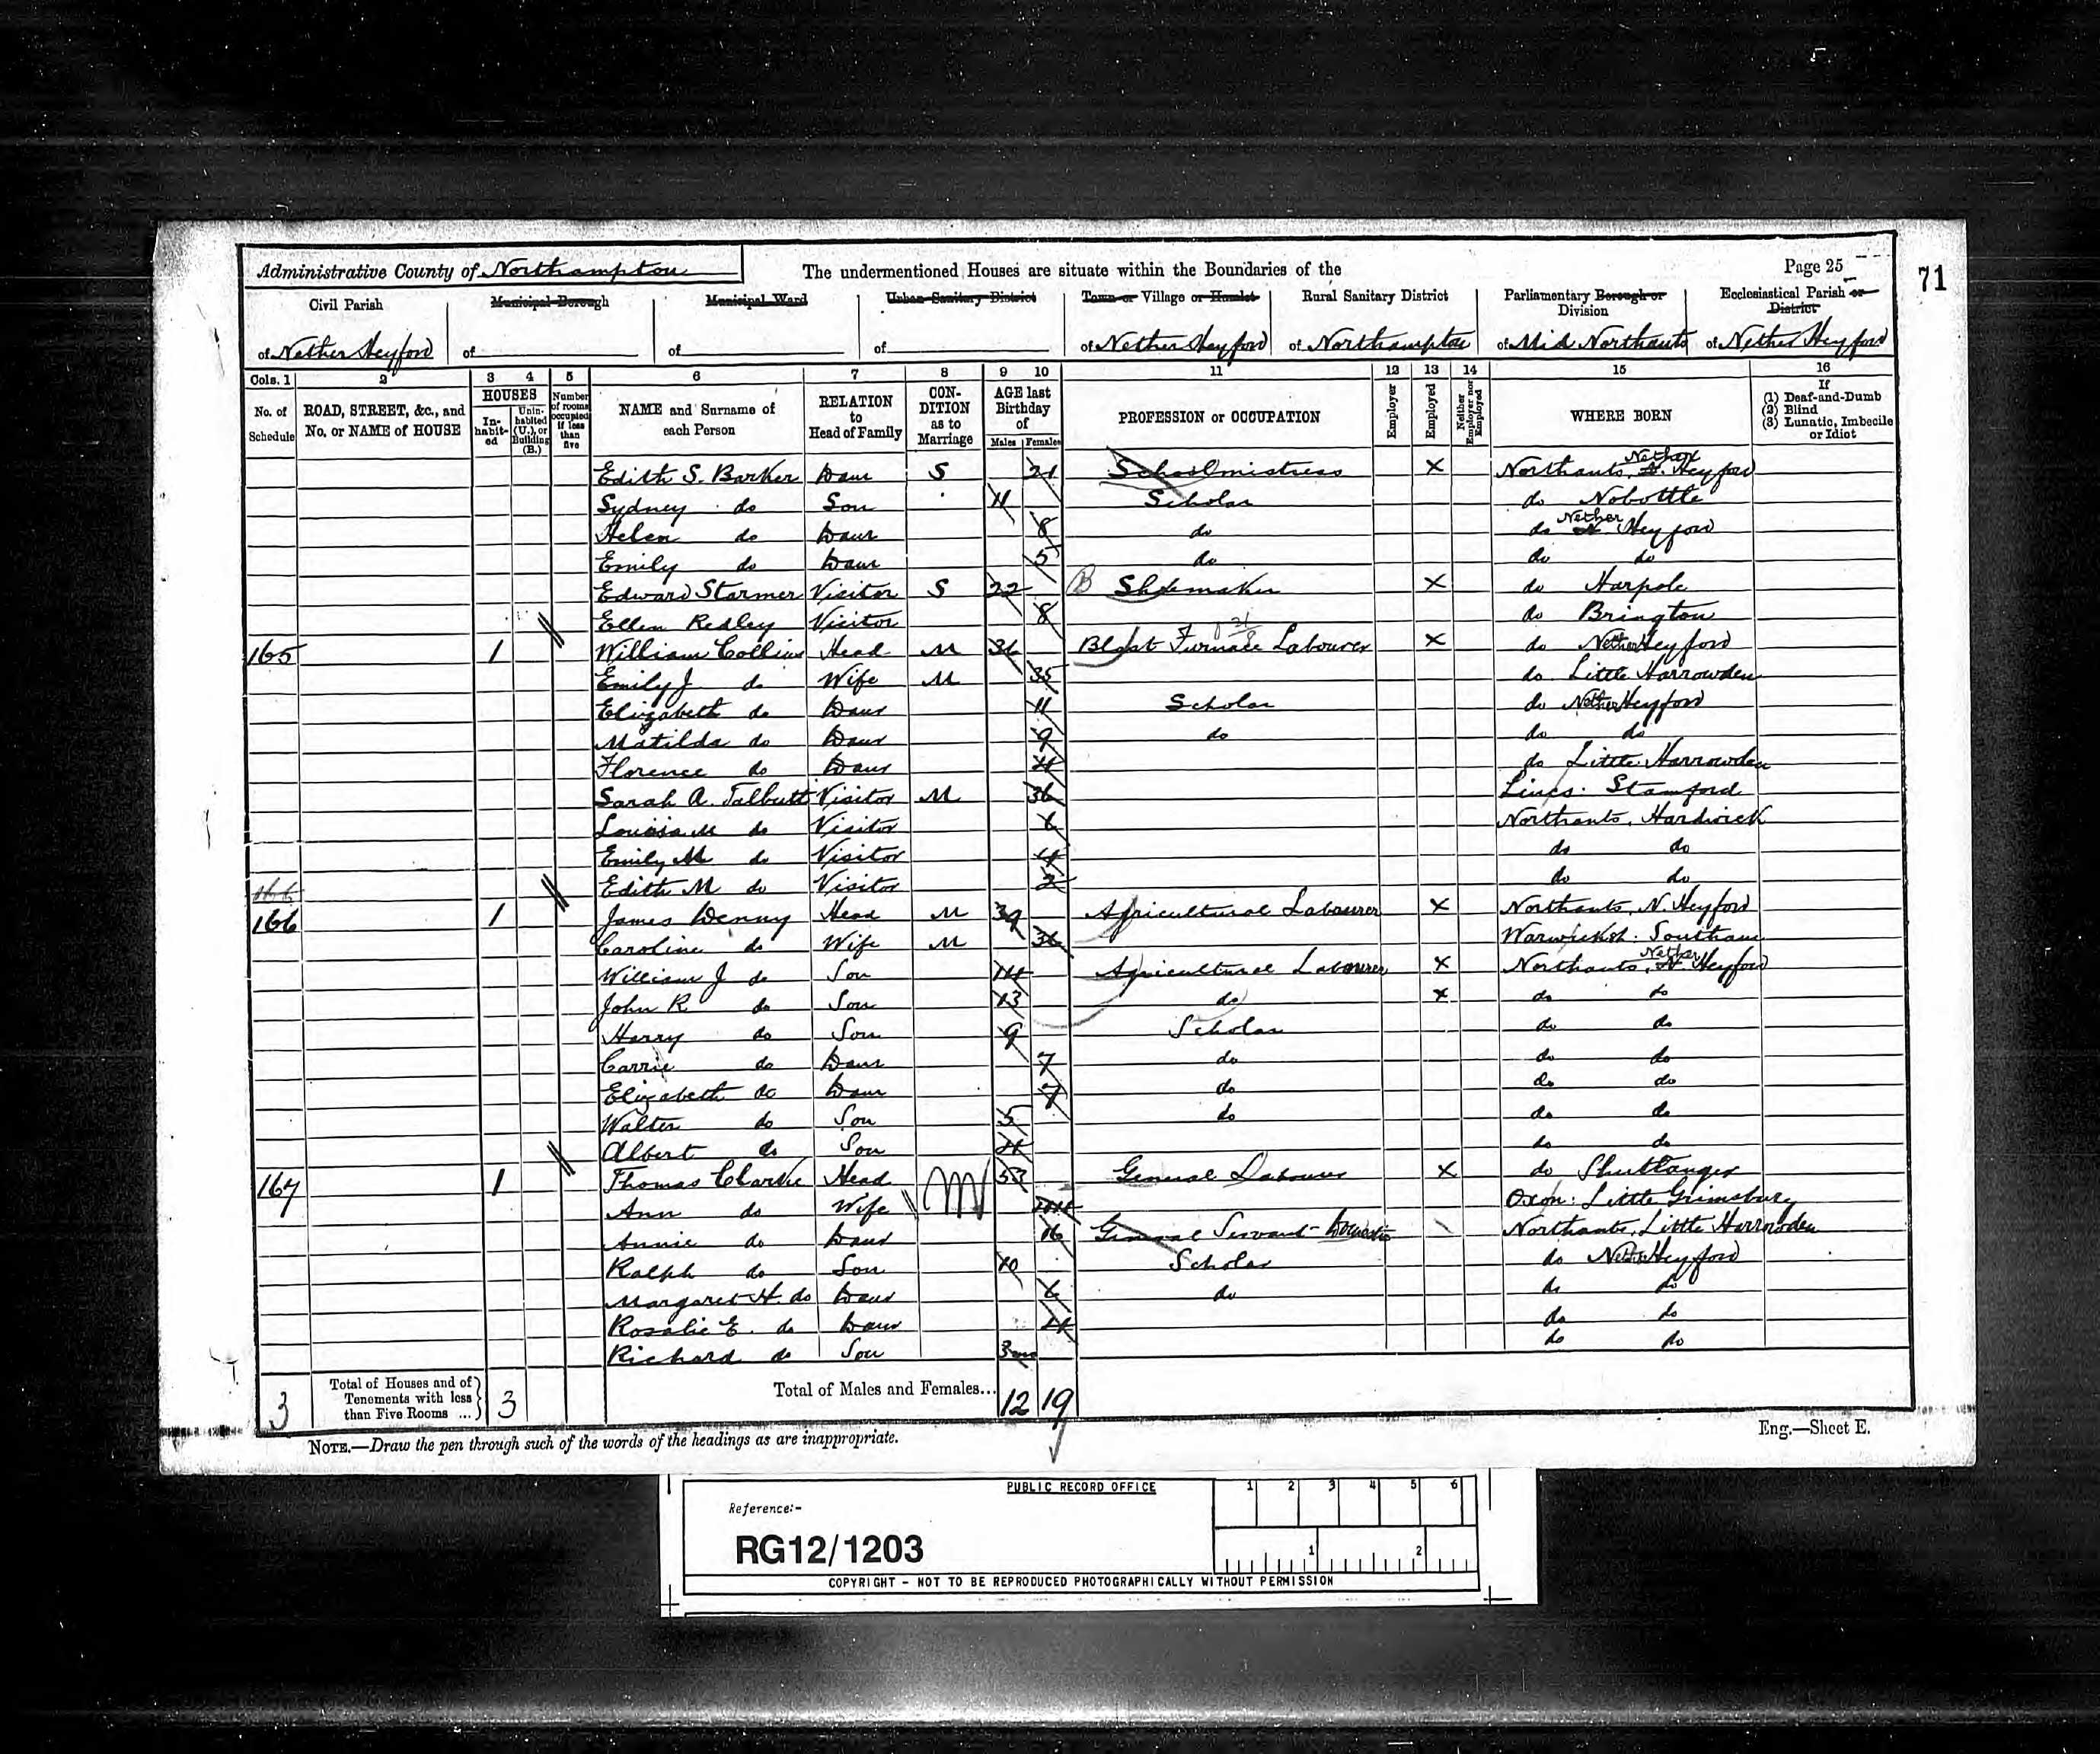 Administrative County of Northampton The undermentioned Houses are situate within the Boundaries of the Page 25
71
Civil Parish Municipal Borough Municipal Ward Urban Sanitary District Town or Village or Hamlet Rural Sanitary District Parliamentary Borough or Division Ecclesiastical Parish or District
of Nether Heyford of of of of Nether Heyford of Northampton of Mid Northants of Nether Heyford
Cols. 1 2 3 4 5 6 7 8 9 10 11 12 13 14 15 16
No. of Schedule ROAD, STREET, &c., and No. or NAME of HOUSE HOUSES Inhabited Uninhabited (U.), or Building (B.) Number of rooms occupied if less than five NAME and Surname of each Person RELATION to Head of Family CONDITION as to Marriage AGE last Birthday of Males Females PROFESSION or OCCUPATION Employer Employed Neither Employer nor Employed WHERE BORN If (1) Deaf-and-Dumb (2) Blind (3) Lunatic, Imbecile or Idiot
Edith S. Barker Daur S 21 Schoolmistress X Northants, Nether Heyford
Sydney do Son 11 Scholar do Nobottle
Helen do Daur 8 do do Nether Heyford
Emily do Daur 5 do do do
Edward Starmer Visitor S 22 B Shoemaker X do Harpole
Ellen Redley Visitor 8 do Brington
165 1 William Collins Head M 36 Blast Furnace Labourer X do Nether Heyford
Emily J do Wife M 35 do Little Harrowden
Elizabeth do Daur 11 Scholar do Nether Heyford
Matilda do Daur 9 do do do
Florence do Daur 4 do Little Harrowden
Sarah A. Talbutt Visitor M 36 Lincs: Stamford
Louisa M do Visitor 6 Northants, Hardwick
Emily M do Visitor 4 do do
166 Edith M do Visitor 2 do do
166 1 James Denny Head M 39 Agricultural Labourer X Northants, N. Heyford
Caroline do Wife M 36 Warwicksh: Southam
William J do Son 14 Agricultural Labourer X Northants, Nether Heyford
John R do Son 13 do X do do
Harry do Son 9 Scholar do do
Carrie do Daur 7 do do do
Elizabeth do Daur 7 do do do
Walter do Son 5 do do do
Albert do Son 4 do do
167 1 Thomas Clarke Head M 53 General Labourer X do Shuttlanger
Ann do Wife Oxon: Little Grimsbury
Annie do Daur 16 General Servant - Domestic Northants, Little Harrowden
Ralph do Son 10 Scholar do Nether Heyford
Margaret H. do Daur 6 do do do
Rosalie E. do Daur 4 do do
Richard do Son 3 mo do do
3 Total of Houses and of Tenements with less than Five Rooms ... 3 Total of Males and Females... 12 19
NOTE.—Draw the pen through such of the words of the headings as are inappropriate. Eng.—Sheet E.
PUBLIC RECORD OFFICE 1 2 3 4 5 6
Reference:-
RG12/1203 1 2
COPYRIGHT - NOT TO BE REPRODUCED PHOTOGRAPHICALLY WITHOUT PERMISSION